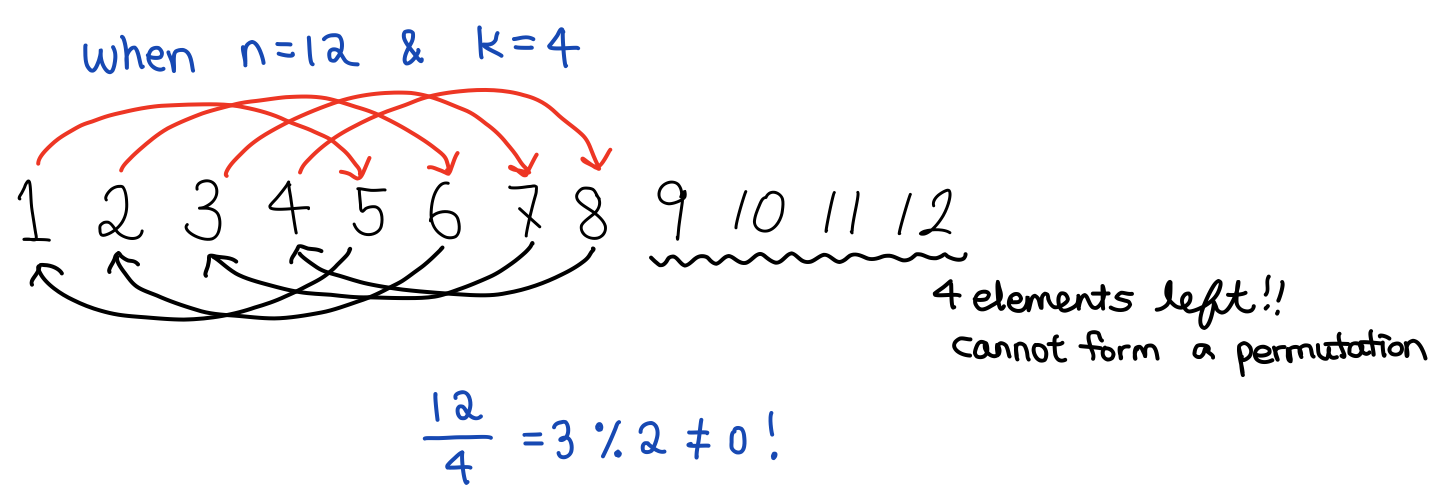 when n=12 & k=4
1 2 3 4 5 6 7 8 9 10 11 12
4 elements left!!
cannot form a permutation
12/4 = 3 % 2 ≠ 0 !